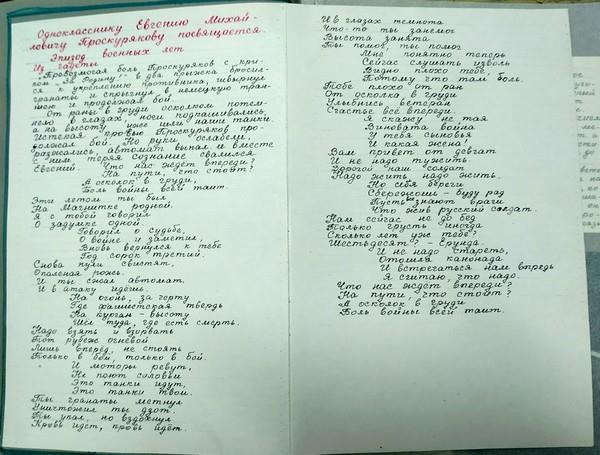 Однокласснику Евгению Михай-
ловичу Проскурякову посвящается
Эпизод военных лет
Из газеты
"Превозмогая боль Проскуряков с кри-
ком "За Родину!" в два прыжка бросил-
ся к укреплению противника, швырнул
гранаты и спрыгнул в немецкую тран-
шею и продолжал бой.
От раны в груди осколком потем-
нело в глазах, ноги подкашивались,
а на высоту уже шли наши танки.
Истекая кровью Проскуряков про-
должал бой. Но руки ослабели,
разжались, автомат выпал и вместе
с ним, теряя сознание свалился
Евгений. Что нас ждёт впереди?
На пути, что стоит?
А осколок в груди,
Боль войны всей таит.
Эти летом ты был
На Магнитке родной.
Я с тобой говорил
О задумке одной.
Говорил о судьбе,
О войне и заметил,
Вновь вернулся к тебе
Год сорок третий.
Снова пули свистят,
Опаленая рожь.
И ты сжал автомат
И в атаку идёшь.
На огонь, за черту
Где фашистская твердь
На курган - высоту
Шёл туда, где есть смерть.
Надо взять и взорвать
Тот рубеж огневой
Лишь вперёд, не стоять
Только в бой, только в бой.
И моторы ревут,
Не поют соловьи
Это танки идут,
Это танки твои.
Ты гранаты метнул
Уничтожил ты дзот.
Ты упал, но вздохнул
Кровь идёт, кровь идёт.
И в глазах темнота
Что-то ты занемог
Высота занята
Ты помог, ты помог
Мне понятно теперь
Сейчас слушать изволь
Видно плохо тебе,
Потому что там боль.
Тебе плохо от ран
От осколка в груди
Улыбнись ветеран
Счастье всё впереди.
Я скажу не тая
Виновата война
У тебя сыновья
И какая жена!
Вам привет от девчат
И не надо тужить.
Дорогой наш солдат
Надо жить, надо жить.
Но себя береги
Сбережёшь - буду рад
Пусть знают враги
Что жив русский солдат.
Нам сейчас не до бед
Только грусть иногда
Сколько лет уж тебе?
Шестьдесят? - Ерунда.
И не надо стареть,
Отошла канонада
И встрегаться нам впредь
Я считаю, что надо.
Что нас ждёт впереди?
На пути, что стоит?
А осколок в груди
Боль войны всей таит.